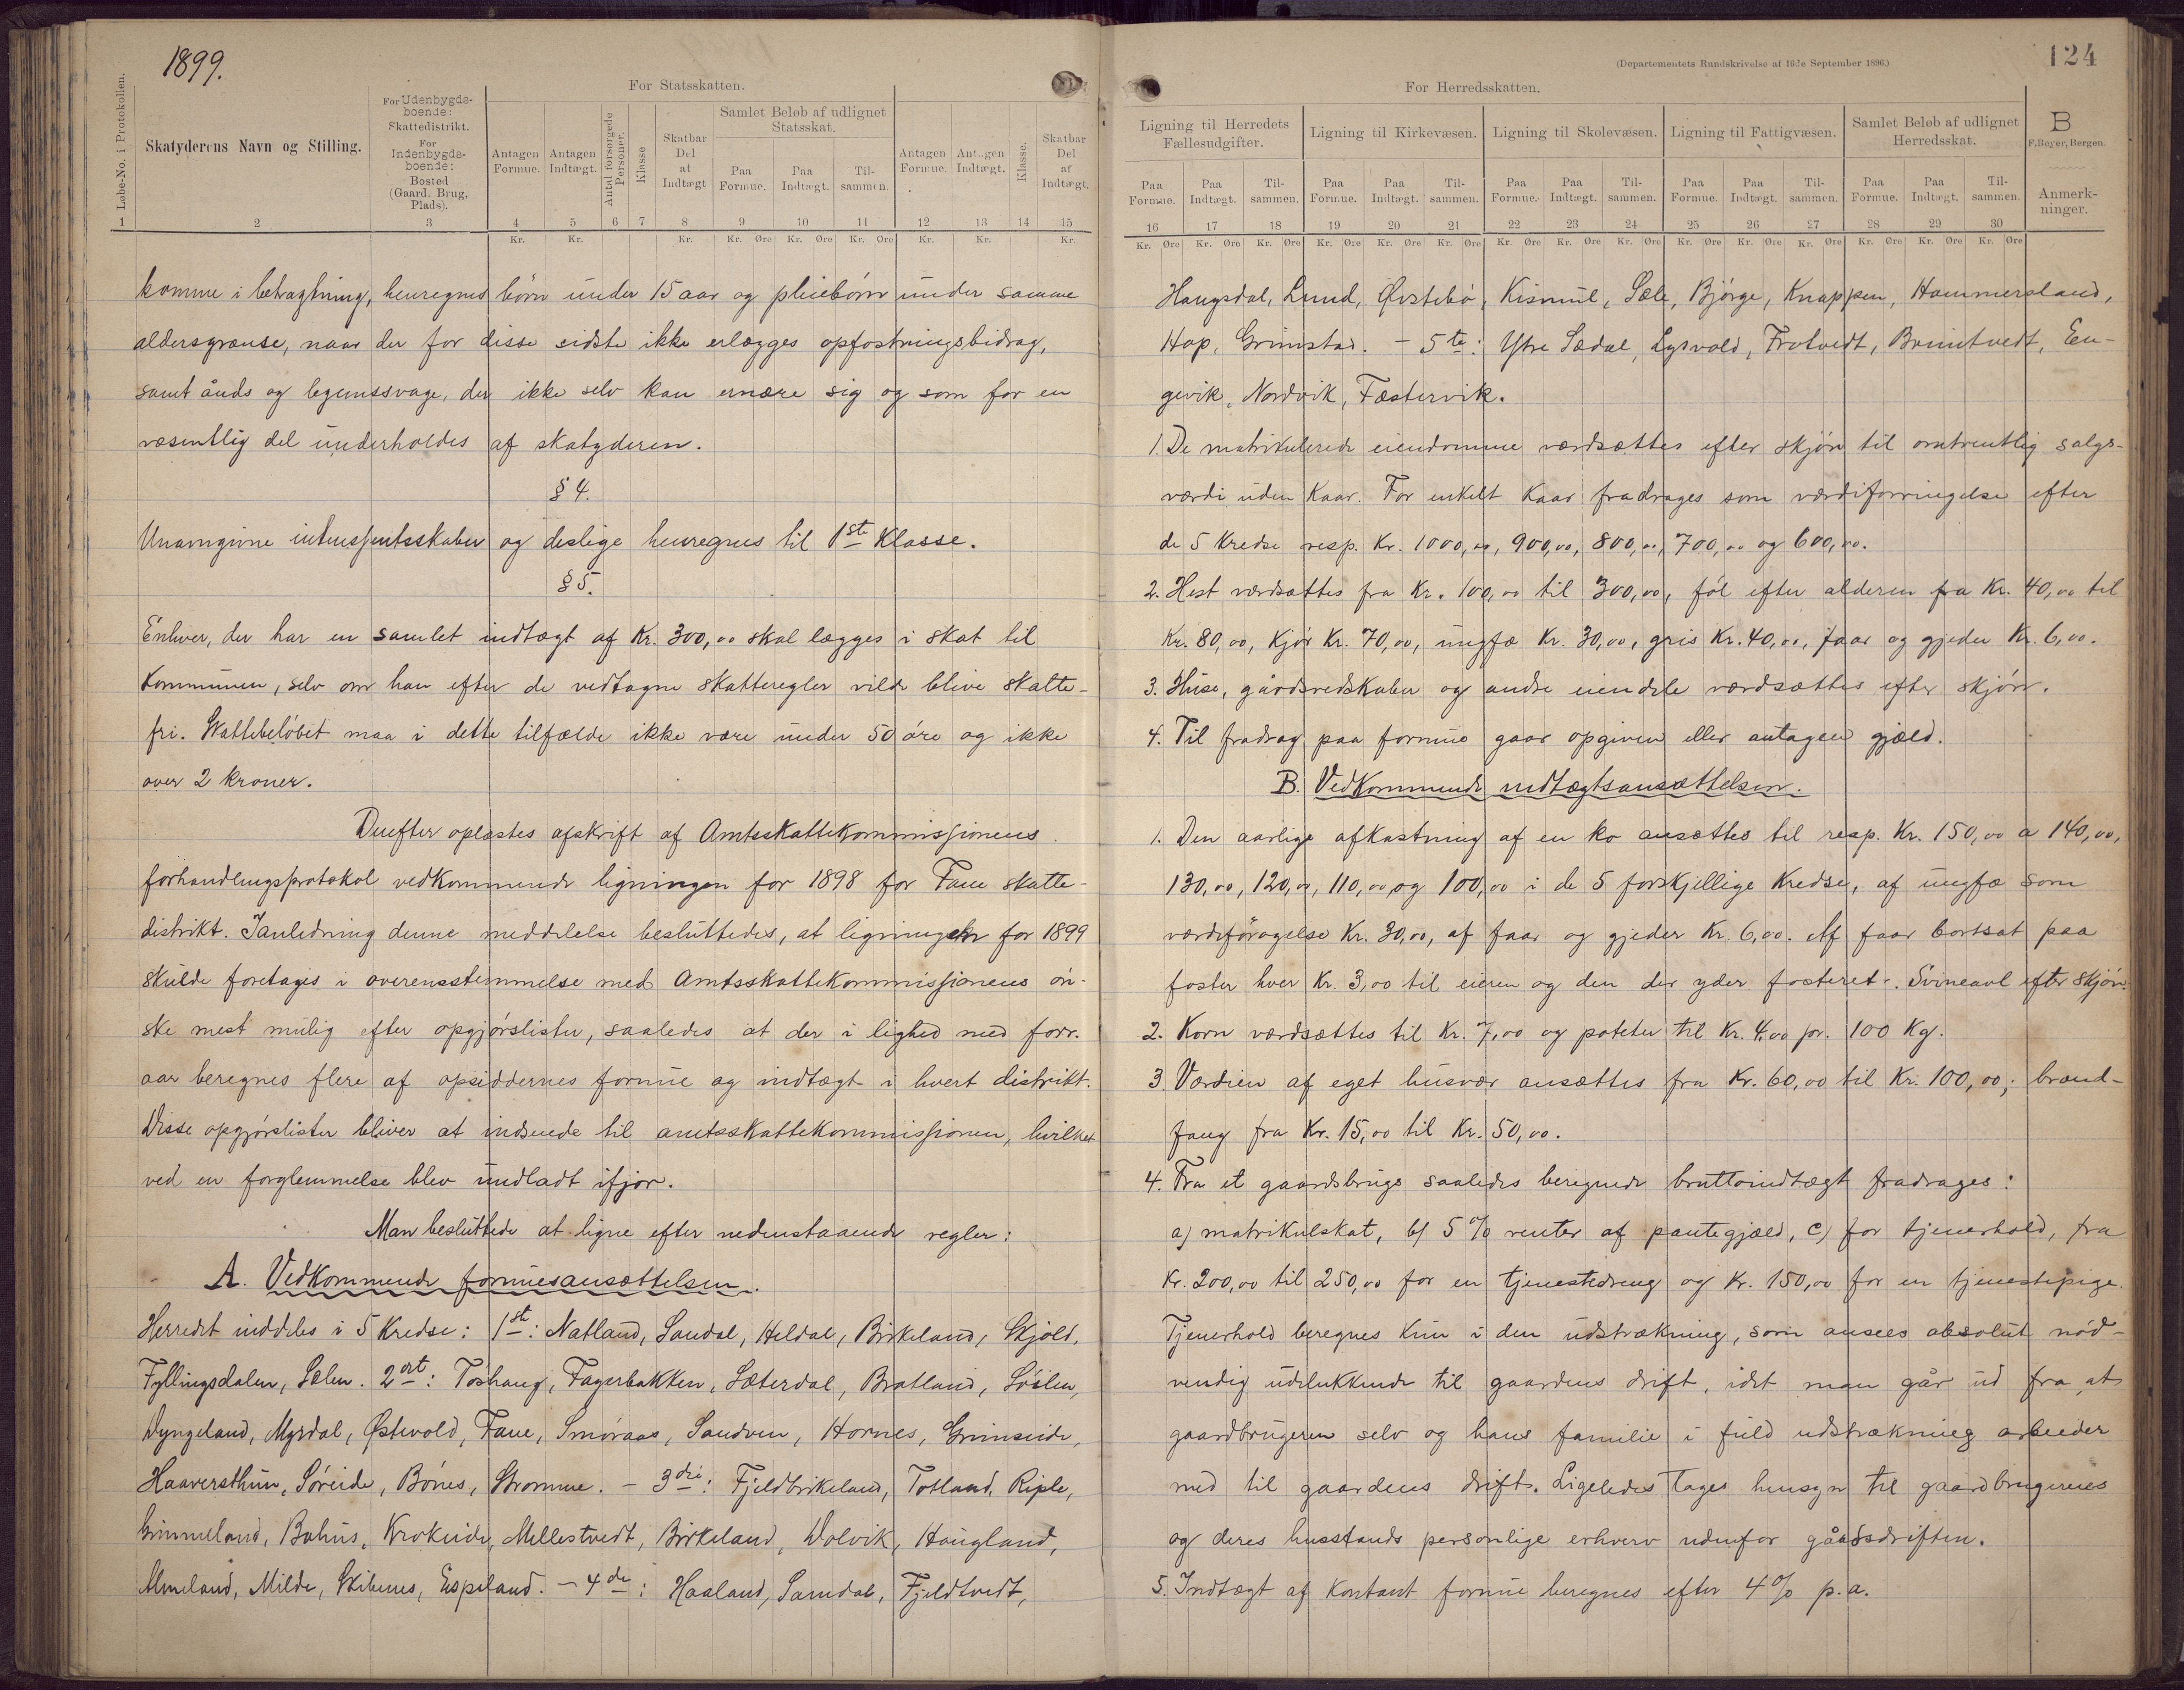 1899.
Løbe-No. i Protokollen.
Skatyderens Navn og Stilling.
For Udenbygds-
boende:
Skattedistrikt.
For
Indenbygds-
boende:
Bosted
(Gaard, Brug,
Plads).
For Statsskatten.
Antagen
Formue.
Antagen
Indtægt.
Antal forsørgede
Personer.
Klasse
Skatbar
Del
at
Indtægt
Samlet Beløb af udlignet
Statsskat.
Paa
Formue.
Paa
Indtægt.
Til-
sammen.
Antagen
Formue.
Antagen
Indtægt.
Klasse.
Skatbar
Del
af
Indtægt.
1 2 3 4 5 6 7 8 9 10 11 12 13 14 15
Kr. Kr. Kr. Kr. Øre Kr. Øre Kr. Øre Kr. Kr. Kr.
komme i betragtning, henregnes börn under 15 aar og pleiebörn under samme
aldersgrænse, naar der for disse sidste ikke erlægges opfostringsbidrag,
samt ånds og legemssvage, der ikke selv kan ernære sig og som for en
væsentlig del underholdes af skatyderen.
§ 4.
Unavngivne interessentsskaber og deslige henregnes til 1ste Klasse.
§ 5.
Enhver, der har en samlet indtægt af Kr. 300,00 skal lægges i skat til
Kommunen, selv om han efter de vedtagne skatteregler vilde blive skatte-
fri. Skattebelöbet maa i dette tilfælde ikke være under 50 öre og ikke
over 2 kroner.
Derefter oplæstes afskrift af Amtsskattekommissionens
forhandlingsprotokol vedkommende ligningen for 1898 for Fane skatte-
distrikt. I anledning denne meddelelse besluttedes, at ligningen for 1899
skulde foretages i overensstemmelse med Amtsskattekommissionens ön-
ske mest mulig efter opgjörslister, saaledes at der i lighed med forr.
aar beregnes flere af opsiddernes formue og indtægt i hvert distrikt.
Disse opgjörslister bliver at indsende til amtsskattekommissionen, hvilket
ved en forglemmelse blev undladt ifjor.
Man besluttede at ligne efter nedenstaaende regler:
A. Vedkommende formuesansættelsen.
Herredet inddeles i 5 Kredse: 1st: Natland, Sandal, Heldal, Birkeland, Skjold,
Fyllingsdalen, Sælen. 2det: Töshaug, Fagerbakken, Sæterdal, Bratland, Söilen,
Dyngeland, Myrdal, Østevold, Fane, Smöraas, Sandven, Hornes, Grimseide,
Haaversthun, Söreide, Bönes, Strömme. – 3die: Fjeldbirkeland, Totland, Riple,
Grimmeland, Bahus, Krokeide, Mellestvedt, Birkeland, Dolvik, Haugland,
Almeland, Milde, Skibenes, Espeland. – 4de: Haaland, Samdal, Fjeldtvedt,
124
(Departementets Rundskrivelse af 16de September 1896.)
For Herredsskatten.
Ligning til Herredets
Fællesudgifter.
Ligning til Kirkevæsen.
Ligning til Skolevæsen.
Ligning til Fattigvæsen.
Samlet Beløb af udlignet
Herredsskat.
B
F. Beyer, Bergen.
Anmerk-
ninger.
Paa Formue. Paa Indtægt. Til-sammen. Paa Formue. Paa Indtægt. Til-sammen. Paa Formue. Paa Indtægt. Til-sammen. Paa Formue. Paa Indtægt. Til-sammen. Paa Formue. Paa Indtægt. Til-sammen.
16 17 18 19 20 21 22 23 24 25 26 27 28 29 30
Kr. Øre Kr. Øre Kr. Øre Kr. Øre Kr. Øre Kr. Øre Kr. Øre Kr. Øre Kr. Øre Kr. Øre Kr. Øre Kr. Øre Kr. Øre Kr. Øre Kr. Øre
Haugsdal, Lund, Østebö, Kismul, Sæle, Björge, Knappen, Hammersland,
Hop, Grimstad. – 5te: Ytre Sædal, Lysvold, Trotvedt, Bruntvedt, En-
gevik, Nordvik, Fæstervik.
1. De matrikulerede eiendomme værdsættes efter skjön til omtrentlig salgs-
værdi uden Kaar. For enkelt Kaar fradrages som værdiforringelse efter
de 5 Kredse resp. Kr. 1000,00, 900,00, 800,00, 700,00 og 600,00.
2. Hest værdsættes fra Kr. 100,00 til 300,00, föl efter alderen fra Kr. 40,00 til
Kr. 80,00, Kjör Kr. 70,00, ungfæ Kr. 30,00, gris Kr. 40,00, faar og gjeder Kr. 6,00.
3. Huse, gårdsredskaber og andre eiendele værdsættes efter skjön.
4. Til fradrag paa formue gaar opgiven eller antagen gjæld.
B. Vedkommende indtægtsansættelsen.
1. Den aarlige afkastning af en ko ansættes til resp. Kr. 150,00 a 140,00,
130,00, 120,00, 110,00 og 100,00 i de 5 forskjellige Kredse, af ungfæ som
værdiforögelse Kr. 30,00, af faar og gjeder Kr. 6,00. Af faar bortsat paa
foster hver Kr. 3,00 til eieren og den der yder fosteret. Svineavl efter skjön.
2. Korn værdsættes til Kr. 7,00 og poteter til Kr. 4,00 pr. 100 Kg.
3. Værdien af eget husvær ansættes fra Kr. 60,00 til Kr. 100,00; brænd-
fang fra Kr. 15,00 til Kr. 50,00.
4. Fra et gaardsbrugs saaledes beregnede bruttoindtægt fradrages:
a) matrikulskat, b) 5 % renter af pantegjæld, c) for tjenerhold, fra
Kr. 200,00 til 250,00 for en tjenestedreng og Kr. 150,00 for en tjenestepige.
Tjenerhold beregnes kun i den udstrækning, som ansees absolut nöd-
vendig udelukkende til gaardens drift, idet man går ud fra at
gaardbrugeren selv og hans familie i fuld udstrækning arbeider
med til gaardens drift. Ligeledes tages hensyn til gaardbrugerenes
og deres husstands personlige erhverv udenfor gårdsdriften.
5. Indtægt af Kontant formue beregnes efter 4 % p.a.